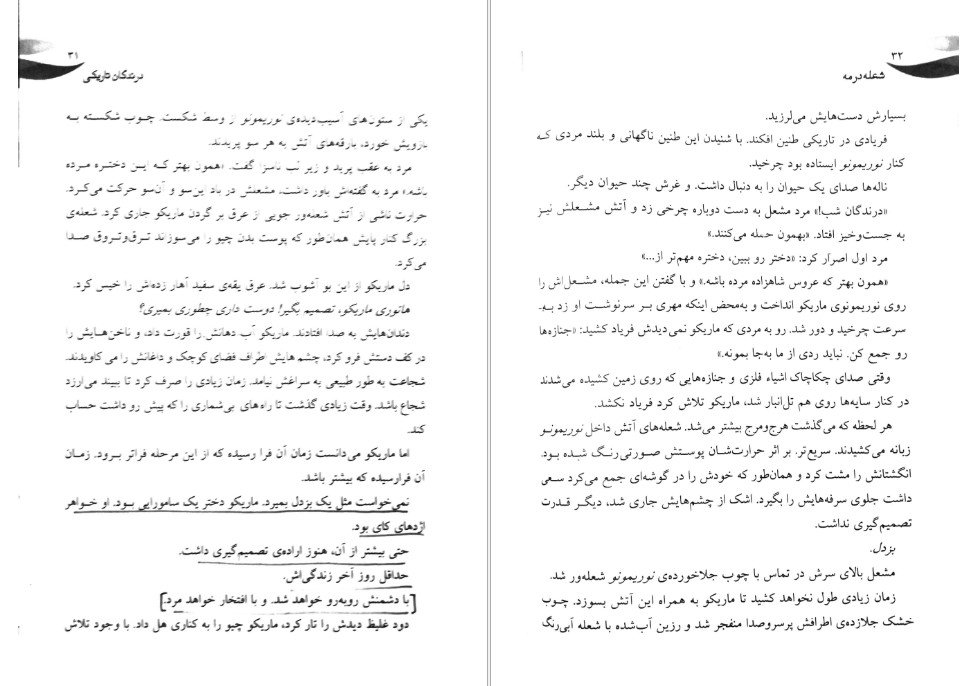 ۳۱
درندگان تاریکی
یکی از ستون‌های آسیب‌دیده‌ی نوریمونو از وسط شکست. چوب شکسته به
بازویش خورد، بارقه‌های آتش به هر سو پریدند.
مرد به عقب پرید و زیر لب ناسزا گفت. «همون بهتر که این دختره مرده
باشه.» مرد به گفته‌اش باور داشت، مشعلش در باد این‌سو و آن‌سو حرکت می‌کرد.
حرارت ناشی از آتش شعله‌ور جویی از عرق بر گردن ماریکو جاری کرد. شعله‌ی
بزرگ کنار پایش همان‌طور که پوست بدن چیو را می‌سوزاند ترق‌وتروق صدا
می‌کرد.
دل ماریکو از این بو آشوب شد. عرق یقه‌ی سفید آهار زده‌اش را خیس کرد.
هاتوری ماریکو، تصمیم بگیر! دوست داری چطوری بمیری؟
دندان‌هایش به صدا افتادند. ماریکو آب دهانش را قورت داد، و ناخن‌هایش را
در کف دستش فرو کرد، چشم هایش اطراف فضای کوچک و داغانش را می کاویدند.
شجاعت به طور طبیعی به سراغش نیامد. زمان زیادی را صرف کرد تا ببیند می‌ارزد
شجاع باشد. وقت زیادی گذشت تا راه‌های بی‌شماری را که پیش رو داشت حساب
کند.
اما ماریکو می‌دانست زمان آن فرا رسیده که از این مرحله فراتر برود. زمان
آن فرارسیده که بیشتر باشد.
نمی‌خواست مثل یک بزدل بمیرد. ماریکو دختر یک سامورایی بود. او خواهر
اژدهای کای بود.
حتی بیشتر از آن، هنوز اراده‌ی تصمیم‌گیری داشت.
حداقل روز آخر زندگی‌اش.
با دشمنش روبه‌رو خواهد شد. و با افتخار خواهد مرد.
دود غلیظ دیدش را تار کرد، ماریکو چیو را به کناری هل داد. با وجود تلاش
۳۲
شعله در مه
بسیارش دست‌هایش می‌لرزید.
فریادی در تاریکی طنین افکند. با شنیدن این طنین ناگهانی و بلند مردی که
کنار نوریمونو ایستاده بود چرخید.
ناله‌ها صدای یک حیوان را به دنبال داشت. و غرش چند حیوان دیگر.
«درندگان شب!» مرد مشعل به دست دوباره چرخی زد و آتش مشعلش نیز
به جست‌وخیز افتاد. «بهمون حمله می‌کنند.»
مرد اول اصرار کرد: «دختر رو ببین، دختره مهم‌تر از...»
«همون بهتر که عروس شاهزاده مرده باشه.» و با گفتن این جمله، مشعل‌اش را
روی نوریمونوی ماریکو انداخت و به‌محض اینکه مهری بر سرنوشت او زد به
سرعت چرخید و دور شد. رو به مردی که ماریکو نمی‌دیدش فریاد کشید: «جنازه‌ها
رو جمع کن. نباید ردی از ما به‌جا بمونه.»
وقتی صدای چکاچاک اشیاء فلزی و جنازه‌هایی که روی زمین کشیده می‌شدند
در کنار سایه‌ها روی هم تل‌انبار شد، ماریکو تلاش کرد فریاد نکشد.
هر لحظه که می‌گذشت هرج‌ومرج بیشتر می‌شد. شعله‌های آتش داخل نوریمونو
زبانه می‌کشیدند. سریع‌تر. بر اثر حرارت‌شان پوستش صورتی‌رنگ شده بود.
انگشتانش را مشت کرد و همان‌طور که خودش را در گوشه‌ای جمع می‌کرد سعی
داشت جلوی سرفه‌هایش را بگیرد. اشک از چشم‌هایش جاری شد، دیگر قدرت
تصمیم‌گیری نداشت.
بزدل.
مشعل بالای سرش در تماس با چوب جلاخورده‌ی نوریمونو شعله‌ور شد.
زمان زیادی طول نخواهد کشید تا ماریکو به همراه این آتش بسوزد. چوب
خشک جلازده‌ی اطرافش پرسروصدا منفجر شد و رزین آب‌شده با شعله آبی‌رنگ